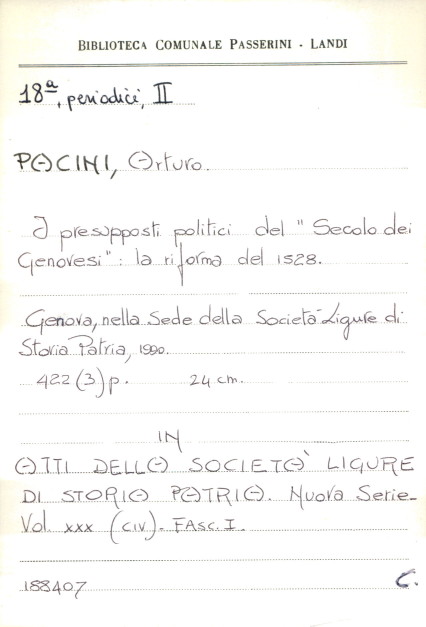 BIBLIOTECA COMUNALE PASSERINI - LANDI
18ª, periodici, II
PACINI, Arturo.
I presupposti politici del "Secolo dei
Genovesi": la riforma del 1528.
Genova, nella Sede della Società Ligure di
Storia Patria, 1990.
422 (3) p. 24 cm.
IN
ATTI DELLA SOCIETÀ LIGURE
DI STORIA PATRIA. Nuova Serie-
Vol. XXX (CIV)- FASC. I.
188407 C.